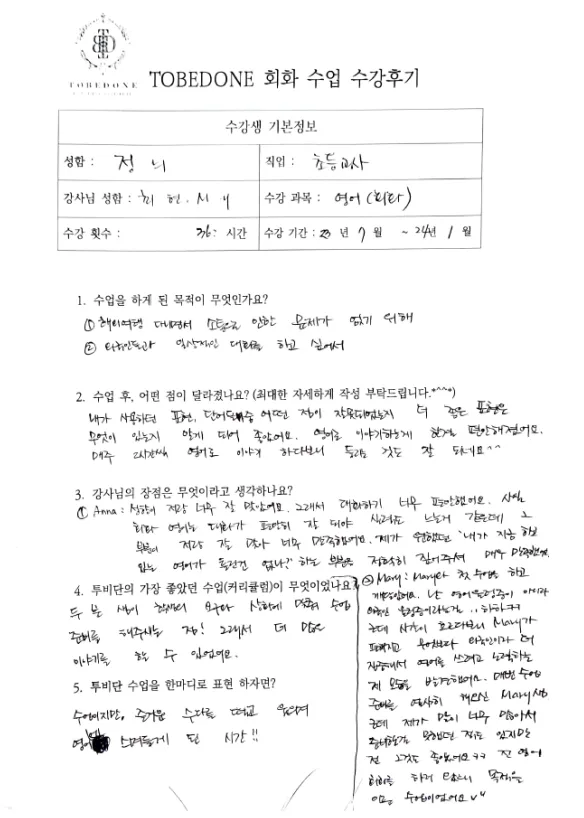 TOBEDONE
TOBEDONE 회화 수업 수강후기
수강생 기본정보
성함 : 정
직업 : 초등교사
강사님 성함 :
수강 과목 : 영어 (회화)
수강 횟수 : 36 시간
수강 기간 : 23 년 7 월 ~ 24년 1 월
1. 수업을 하게 된 목적이 무엇인가요?
① 해외여행 다니면서 소통으로 인한 문제가 없기 위해
② 외국인들과 일상적인 대화를 하고 싶어서
2. 수업 후, 어떤 점이 달라졌나요? (최대한 자세하게 작성 부탁드립니다.*^^*)
내가 사용하던 표현, 단어들 중 어떤 점이 잘못되었는지 더 좋은 표현은
무엇이 있는지 알게 되어 좋았어요. 영어로 이야기하는게 한결 편안해졌어요.
매주 2시간씩 영어로 이야기 하다보니 들리는 것도 잘 되네요^^
3. 강사님의 장점은 무엇이라고 생각하나요?
① Anna : 성향이 저랑 너무 잘 맞았어요. 그래서 대화하기 너무 편안했어요. 사실
회화 영어는 대화가 편안히 잘 되야 실력도 느는거 같은데 그
부분이 저랑 잘 맞아 너무 만족했어요. 제가 원했던 "내가 지금 하고
있는 영어가 틀린건 없나?" 하는 부분을 정확히 잡아주셔 매우 만족했어요.
4. 투비단의 가장 좋았던 수업(커리큘럼)이 무엇이었나요?
두 분 쌤이 학생의 모두 상황에 맞춰 수업
준비를 해주시는 점! 그래서 더 많은
이야기를 할 수 있었어요.
5. 투비단 수업을 한마디로 표현 하자면?
수업이지만, 즐거운 수다를 떨고 웃으며
영어에 스며들게 된 시간!!
② Mary : Mary와 첫 수업을 하고
기억나네요. 난 영어울렁증이 아니라
외국인 울렁증이라는걸.. 하하ㅋㅋ
근데 시간이 흐르다보니 Mary가
편해지고 무엇보다 외국인이랑 더
집중해서 영어를 쓰려고 노력하는
제 모습을 발견했어요. 매번 수업
준비를 열심히 해오신 Mary쌤
근데 제가 말이 너무 많아서
준비한걸 못했던 적도 있지만
전 그것도 좋았어요ㅋㅋ 진 영어
회화를 하게 만드니 목적을
이룬 수업이었어요 vv